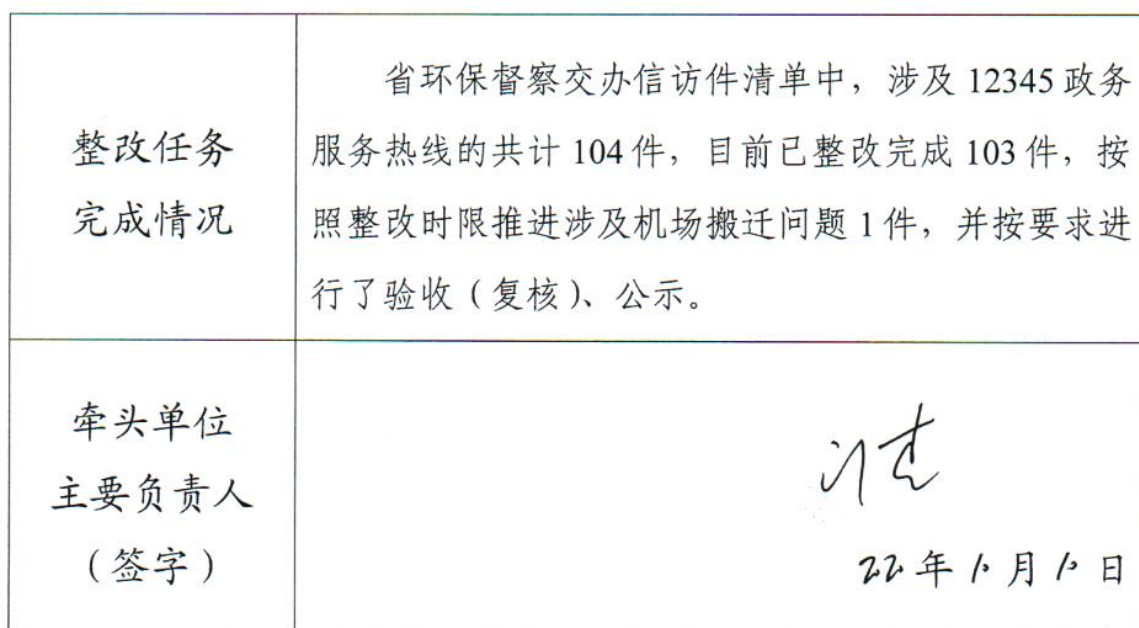 整改任务
完成情况
省环保督察交办信访件清单中，涉及 12345 政务
服务热线的共计 104 件，目前已整改完成 103 件，按
照整改时限推进涉及机场搬迁问题 1 件，并按要求进
行了验收（复核）、公示。
牵头单位
主要负责人
（签字）
22年10月10日